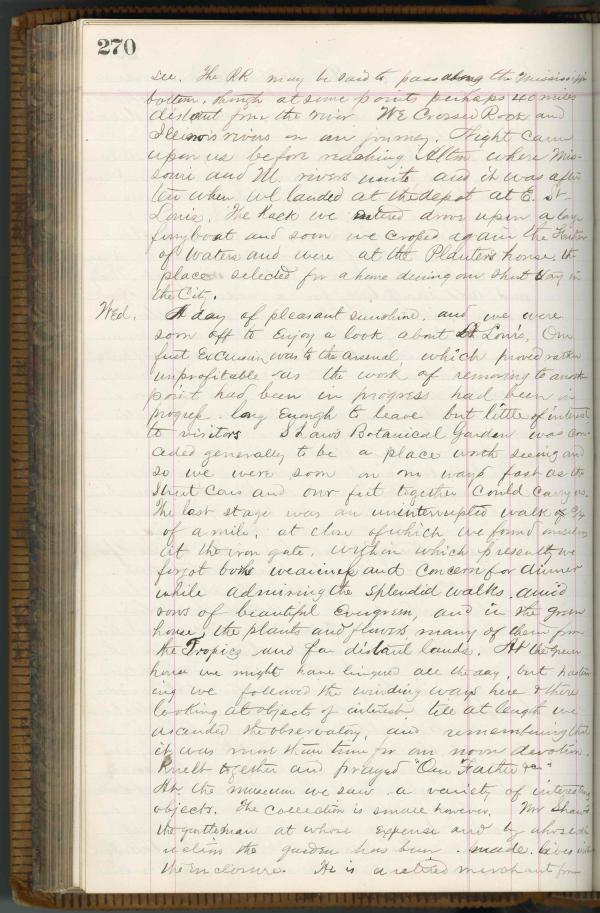 270
see. The RR may be said to pass along the Mississippi
bottom, though at some points perhaps 40 miles
distant from the river. We crossed Rock and
Illinois rivers on our journey. Night came
upon us before reaching Alton where Mis-
souri and Ill rivers unite and it was after
ten when we landed at the depot at E. St-
Louis. The Hack we entered drove upon a large
ferryboat and soon we crossed again the
of Waters and were at the Planters house, the
place selected for a home during our short stay in
the City.
Wed. A day of pleasant sunshine, and we were
soon off to enjoy a look about St Louis. Our
first Excursion was to the Arsenal, which proved rather
unprofitable as the work of removing to another
point had been in progress had been in
progress long enough to leave but little of interest
to visitors Shaws Botanical Garden was con-
ceded generally to be a place worth seeing and
so we were soon on our way as fast as the
Street Cars and our feet together could carry us.
The last stage was an uninterrupted walk of 3/4
of a mile, at close of which we found ourselves
at the iron gate, within which presently we
forgot both weariness and concern for dinner
while admiring the splendid walks, amid
rows of beautiful Evergreen, and in the green
house, the plants and flowers many of them from
the Tropics and far distant lands. At the Green
house we might have lingered all the day, but hasten-
ing we followed the winding ways here & there
looking at objects of interest till at length we
ascended the observatory, and remembering that
it was more than time for our noon devotion
Knelt together and prayed "Our Father &c"
At the museum we saw a variety of interesting
objects. The collection is small however. Mr Shaw
the gentleman at whose expense and by whose di-
rection the garden has been made lives within
the enclosure. He is a retired merchant from